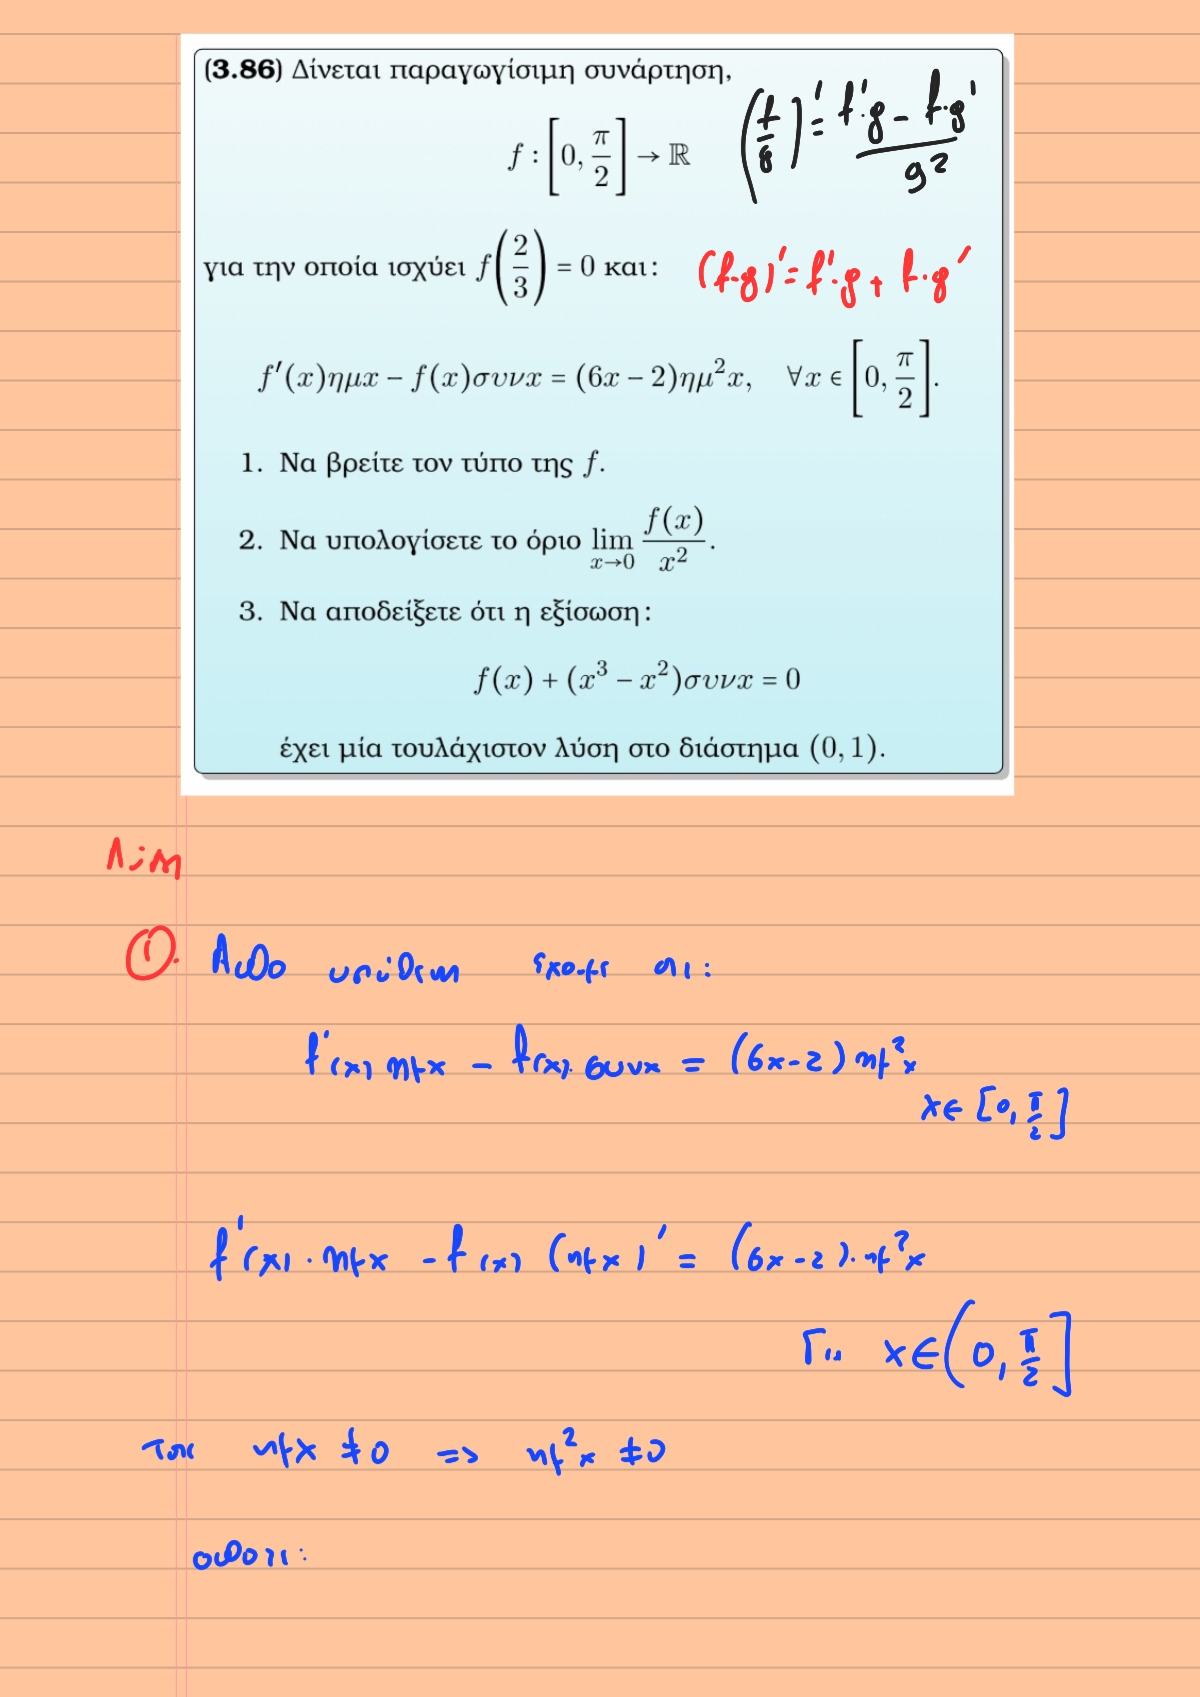 (3.86) Δίνεται παραγωγίσιμη συνάρτηση,
f : [0, π/2] → ℝ
(f/g)' = (f'·g - f·g')/g²
για την οποία ισχύει f(2/3) = 0 και:
(f·g)' = f'·g + f·g'
f'(x)ημx − f(x)συνx = (6x − 2)ημ²x, ∀x ∈ [0, π/2].
1. Να βρείτε τον τύπο της f.
2. Να υπολογίσετε το όριο lim x→0 f(x)/x².
3. Να αποδείξετε ότι η εξίσωση:
f(x) + (x³ − x²)συνx = 0
έχει μία τουλάχιστον λύση στο διάστημα (0, 1).
Λύση
①. Από υπόθεση έχουμε οτι:
f'(x) ημx - f(x)·συνx = (6x-2) ημ²x
x ∈ [0, π/2]
f'(x)·ημx - f(x) (ημx)' = (6x-2)·ημ²x
Για x ∈ (0, π/2]
τοτε ημx ≠ 0 => ημ²x ≠ 0
οποτε: